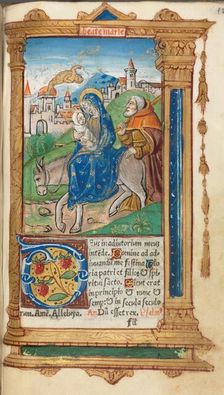 beate marie
eus in adiutorium meum
intēde. Domine ad ad
iuuandū me festina. Gloria
patri et filio et spi
ritui sancto. Sicut erat
in principio et nunc et
semp̄ / in secula seculo
rum. Amē. Alleluya. An̄ Dū esset rex. Psal